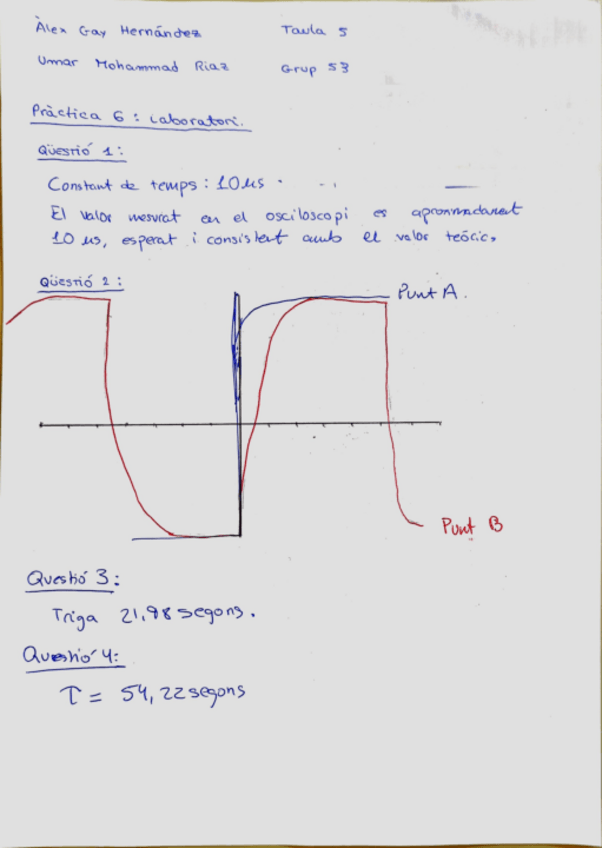 Àlex Gay Hernández Taula 5
Umar Mohammad Riaz Grup 53
Pràctica 6: Laboratori.
Qüestió 1:
Constant de temps: 10 us
El valor mesurat en el osciloscopi es aproximadament
10 us, esperat i consistent amb el valor teòric.
Qüestió 2:
Punt A.
Punt B
Questió 3:
Triga 21,98 segons.
Questió 4:
τ = 54,22 segons